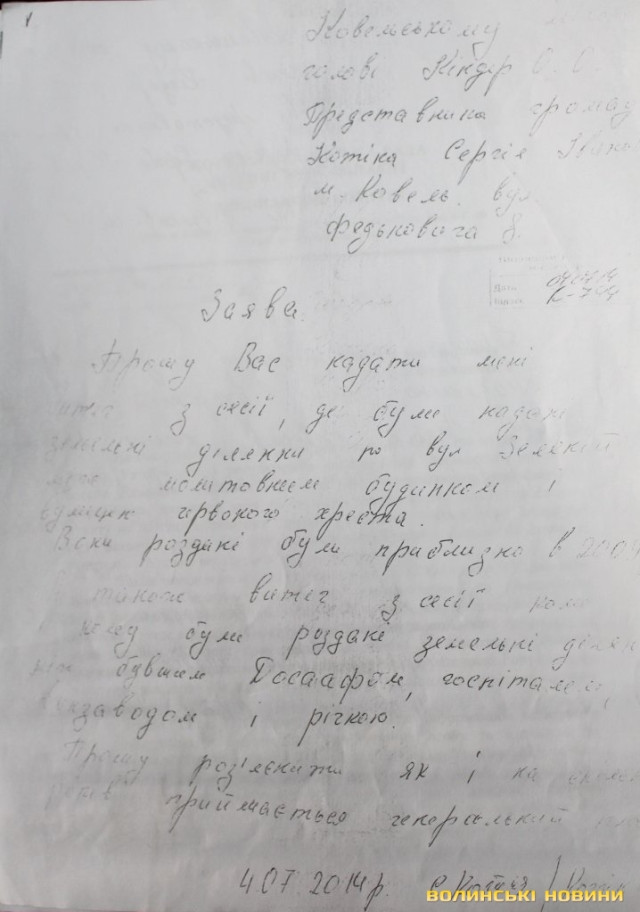 Ковельському
голові Кіндер О. О.
Представника громад
Котіка Сергія Івано
м. Ковель. вул
Федьковича 8.
Заява.
Прошу Вас надати мені
витяг з сесії, де були надані
земельні ділянки по вул Зеленій
між молитовним будинком і
вулицею червоного хреста.
Вони роздані були приблизно в 200
також витяг з сесії коли
кому були роздані земельні ділян
між бувшим Досаафом, госпіталем,
заводом і річкою.
Прошу роз'яснити як і на скільки
років приймається генеральний план
4.07.2014р.
ВОЛИНСЬКІ НОВИНИ